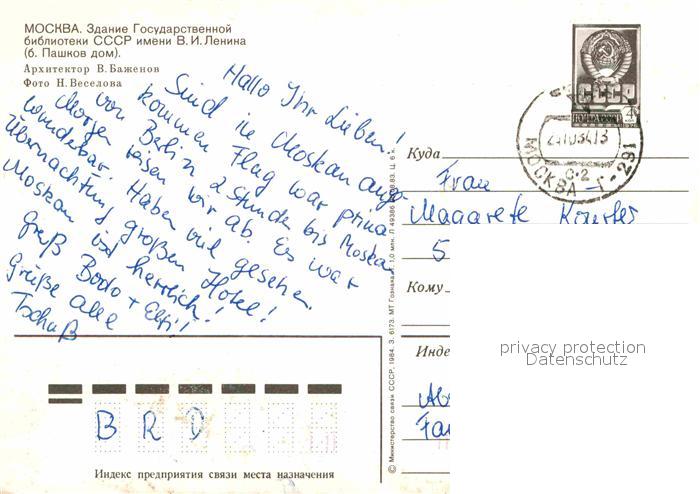 МОСКВА. Здание Государственной
библиотеки СССР имени В. И. Ленина
(б. Пашков дом).
Архитектор В. Баженов
Фото Н. Веселова
Hallo Ihr Lieben!
Sind in Moskau ange
kommen Flug war prima
von Berlin 2 Stunden bis Moskau
Morgen reisen wir ab. Es war
wunderbar. Haben viel gesehen.
Übernachtung großen Hotel!
Moskau ist herrlich!
Gruß Bodo + Elfi!
Grüße alle
Tschüß
СССР
МОСКВА
Куда
Frau
5
Кому
Инде
privacy protection
Datenschutz
B R D
Индекс предприятия связи места назначения
© Министерство связи СССР, 1984. З. 6173. МТ Гознака.